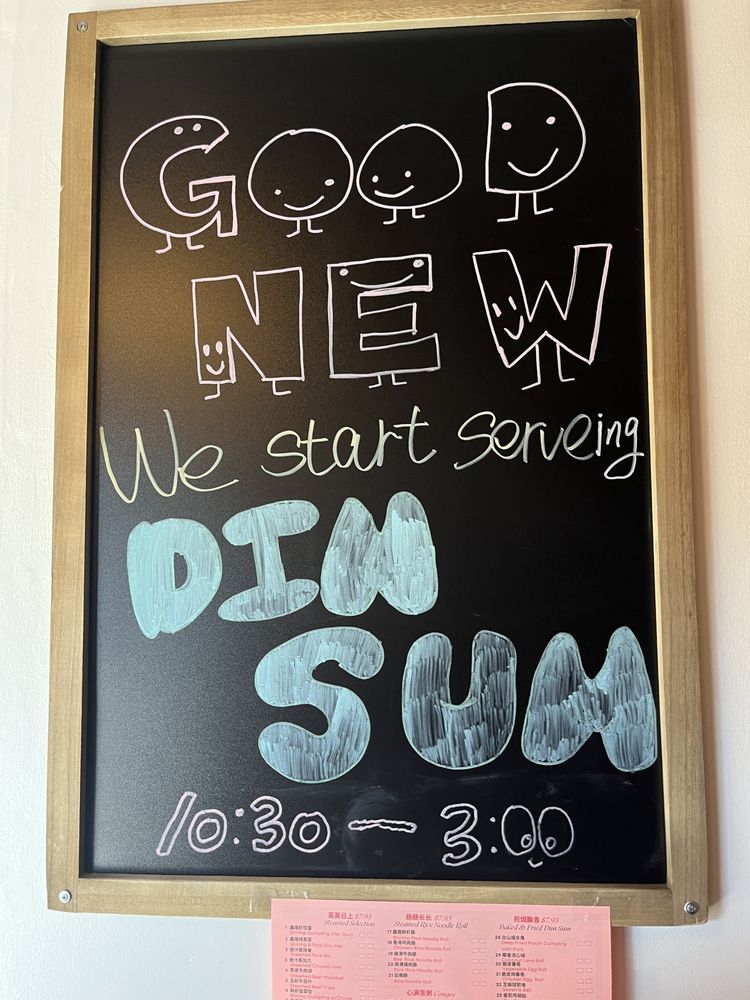 GOOD
NEW
We start serveing
DIN
SUM
10:30 — 3:00
蒸蒸日上 $7.95
Steamed Selection
Shrimp Dumpling (Har Gow)
Shrimp & Pork Shiu Mai
Steamed Pork Rib
Steamed Chicken Feet
Steamed Beef Meatball
Steamed Beef Tripe
肠肠长长 $7.95
Steamed Rice Noodle Roll
Shrimp Rice Noodle Roll
Chicken Rice Noodle Roll
Beef Rice Noodle Roll
Pork Rice Noodle Roll
Rice Noodle Roll
心满意粥 Congee
煎焗飘香 $7.95
Baked & Fried Dim Sum
Deep Fried Mochi Dumpling
with Pork
Lava Ball
Vegetable Egg Roll
Chicken Egg Roll
Sesame Ball